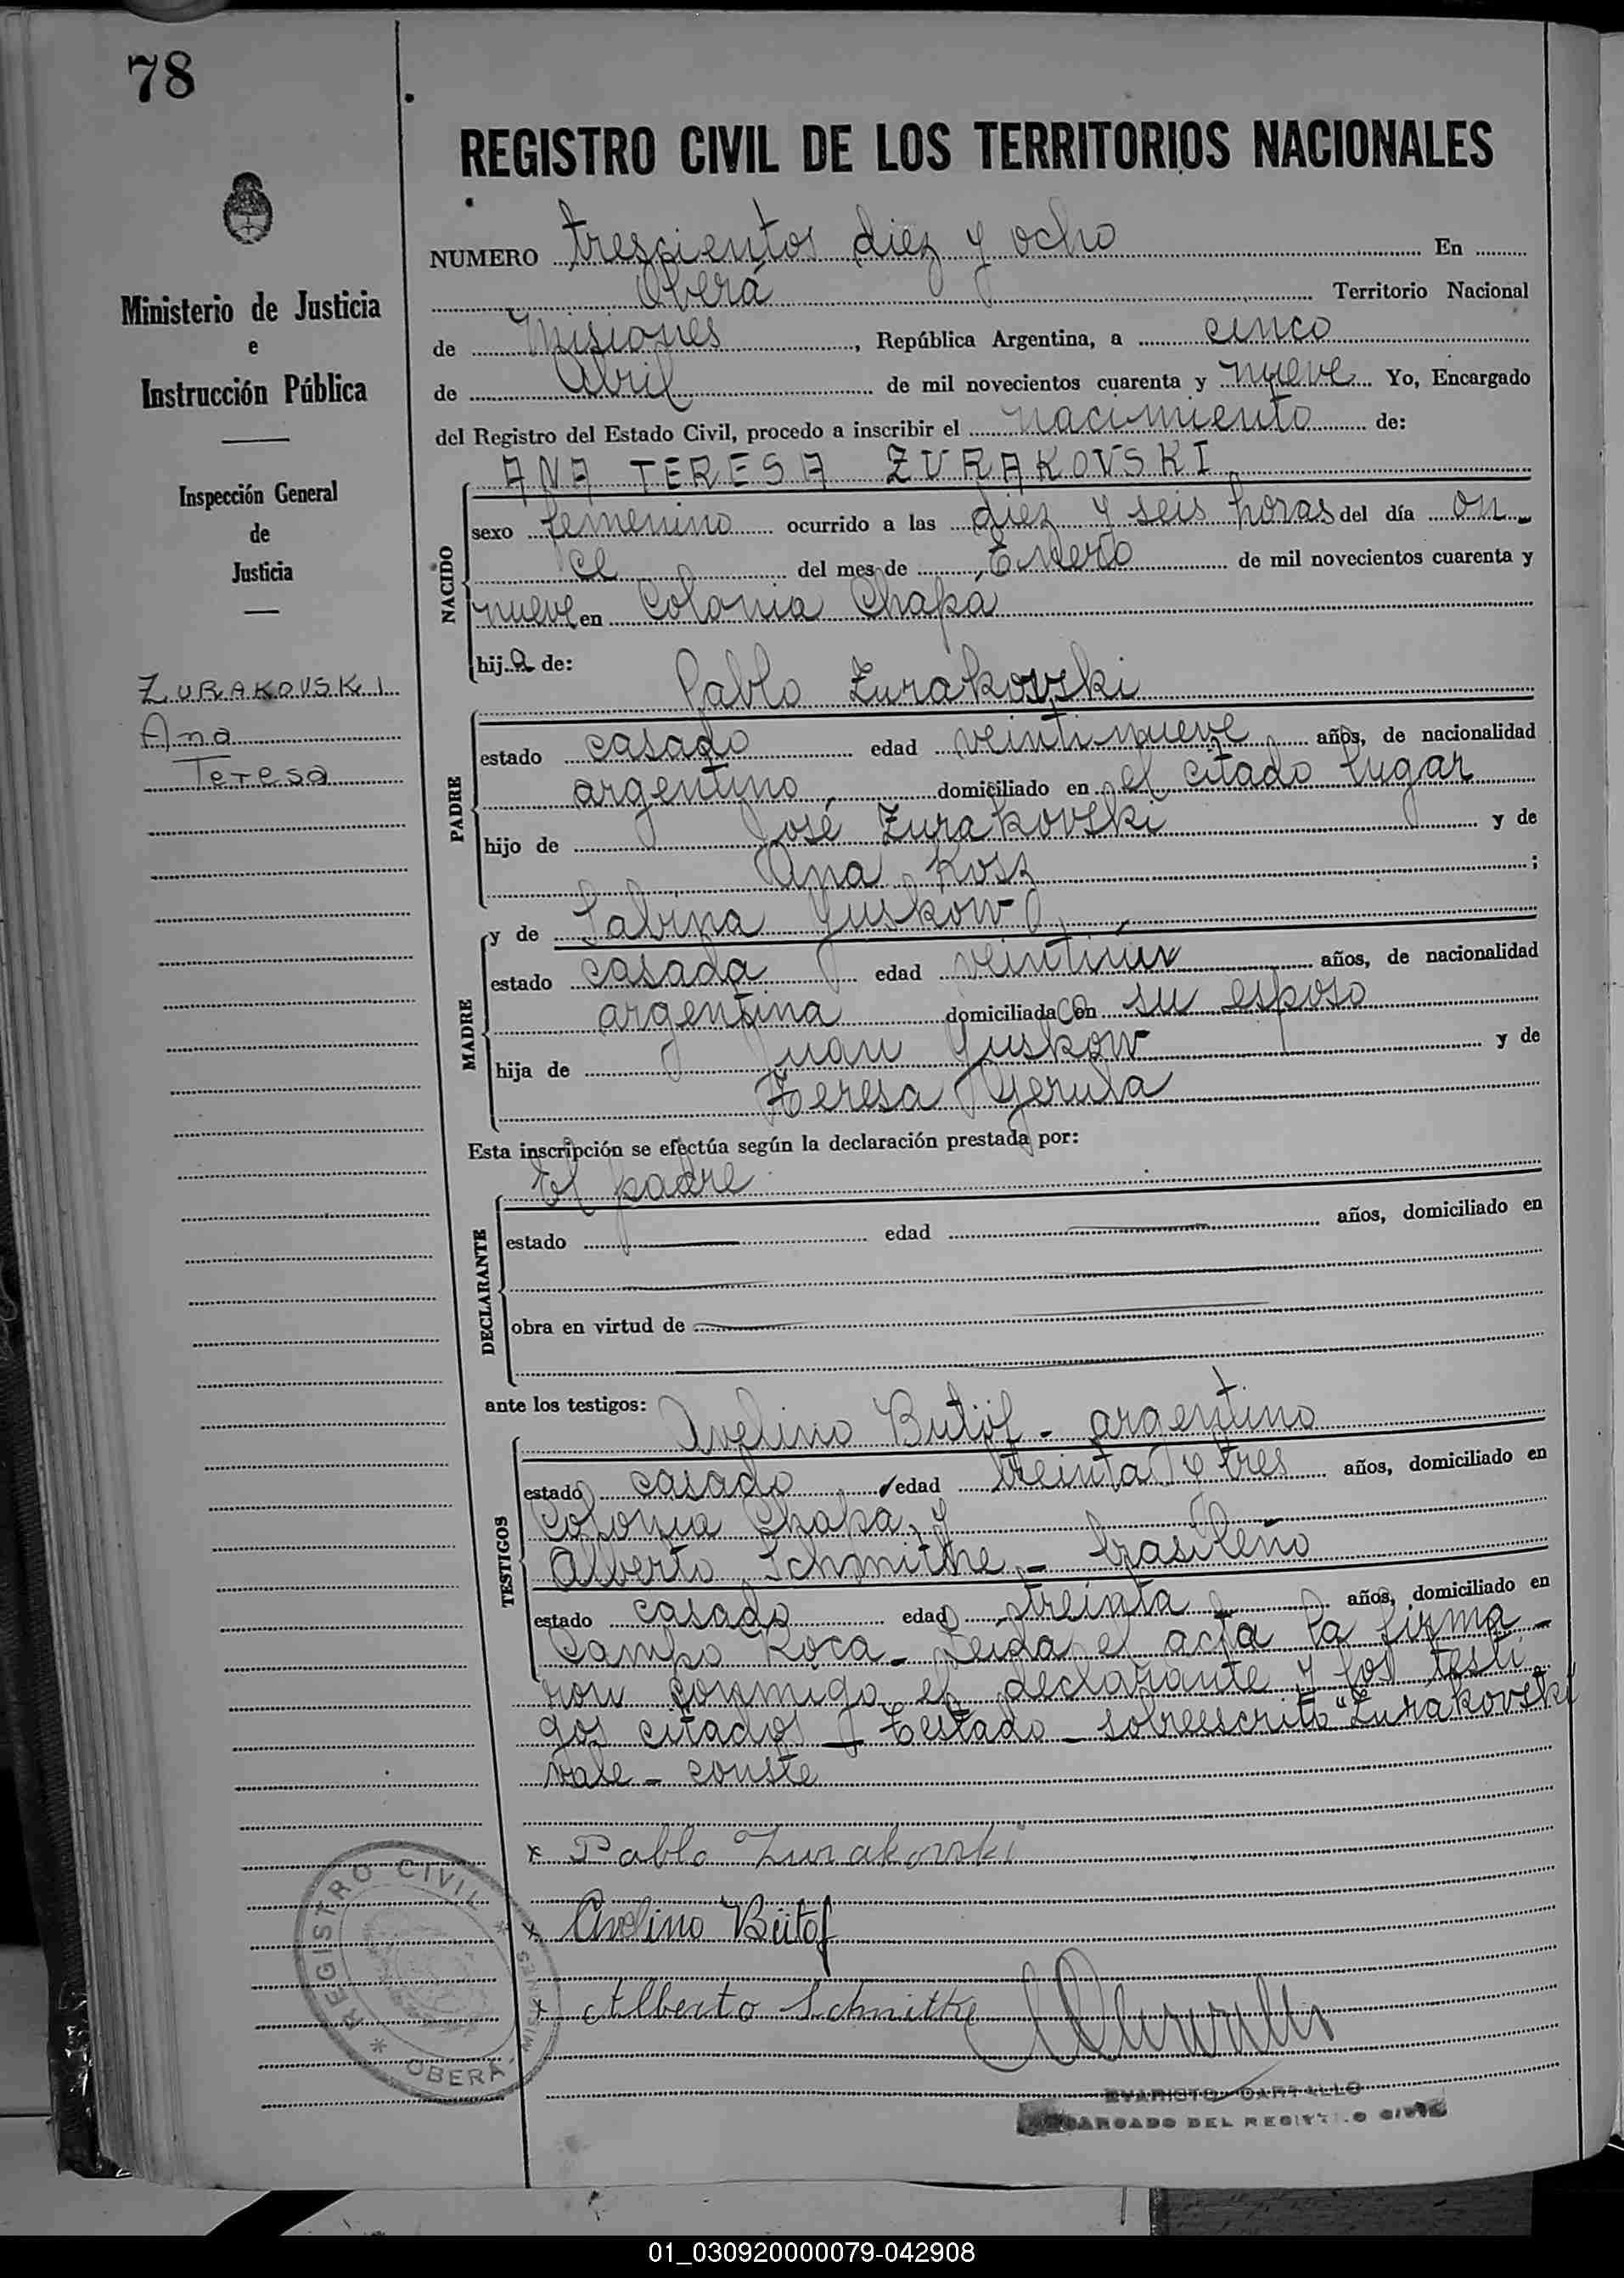 78
REGISTRO CIVIL DE LOS TERRITORIOS NACIONALES
NUMERO trescientos diez y ocho En
Oberá Territorio Nacional
de Misiones, República Argentina, a cinco
de Abril de mil novecientos cuarenta y nueve Yo, Encargado
del Registro del Estado Civil, procedo a inscribir el nacimiento de:
Ministerio de Justicia
e
Instrucción Pública
Inspección General
de
Justicia
ZURAKOVSKI
Ana
Teresa
ANA TERESA ZURAKOVSKI
NACIDO
sexo femenino ocurrido a las diez y seis horas del día on-
ce del mes de Enero de mil novecientos cuarenta y
nueve en Colonia Chapá
hija de:
Pablo Zurakovski
PADRE
estado casado edad veintinueve años, de nacionalidad
argentino domiciliado en el citado lugar
hijo de José Zurakovski y de
Ana Kosz;
MADRE
y de Sabina Juskow
estado casada edad veintiún años, de nacionalidad
argentina domiciliada con su esposo
hija de Juan Juskow y de
Teresa
Esta inscripción se efectúa según la declaración prestada por:
El padre
DECLARANTE
estado edad años, domiciliado en
obra en virtud de
ante los testigos:
Avelino Butöf - argentino
TESTIGOS
estado casado edad treinta y tres años, domiciliado en
Colonia Chapá, y
Alberto Schmithe - brasileño
estado casado edad treinta años, domiciliado en
Campo Roca - Leída el acta la firma-
ron conmigo el declarante y los testi
gos citados - Testado - sobreescrito "Zurakovski
vale - conste
x Pablo Zurakovski
x Avelino Bütof
x Alberto Schmitke
REGISTRO CIVIL * MISIONES OBERÁ *
EVARISTO CARVALLO
ENCARGADO DEL REGISTRO CIVIL
01_030920000079-042908